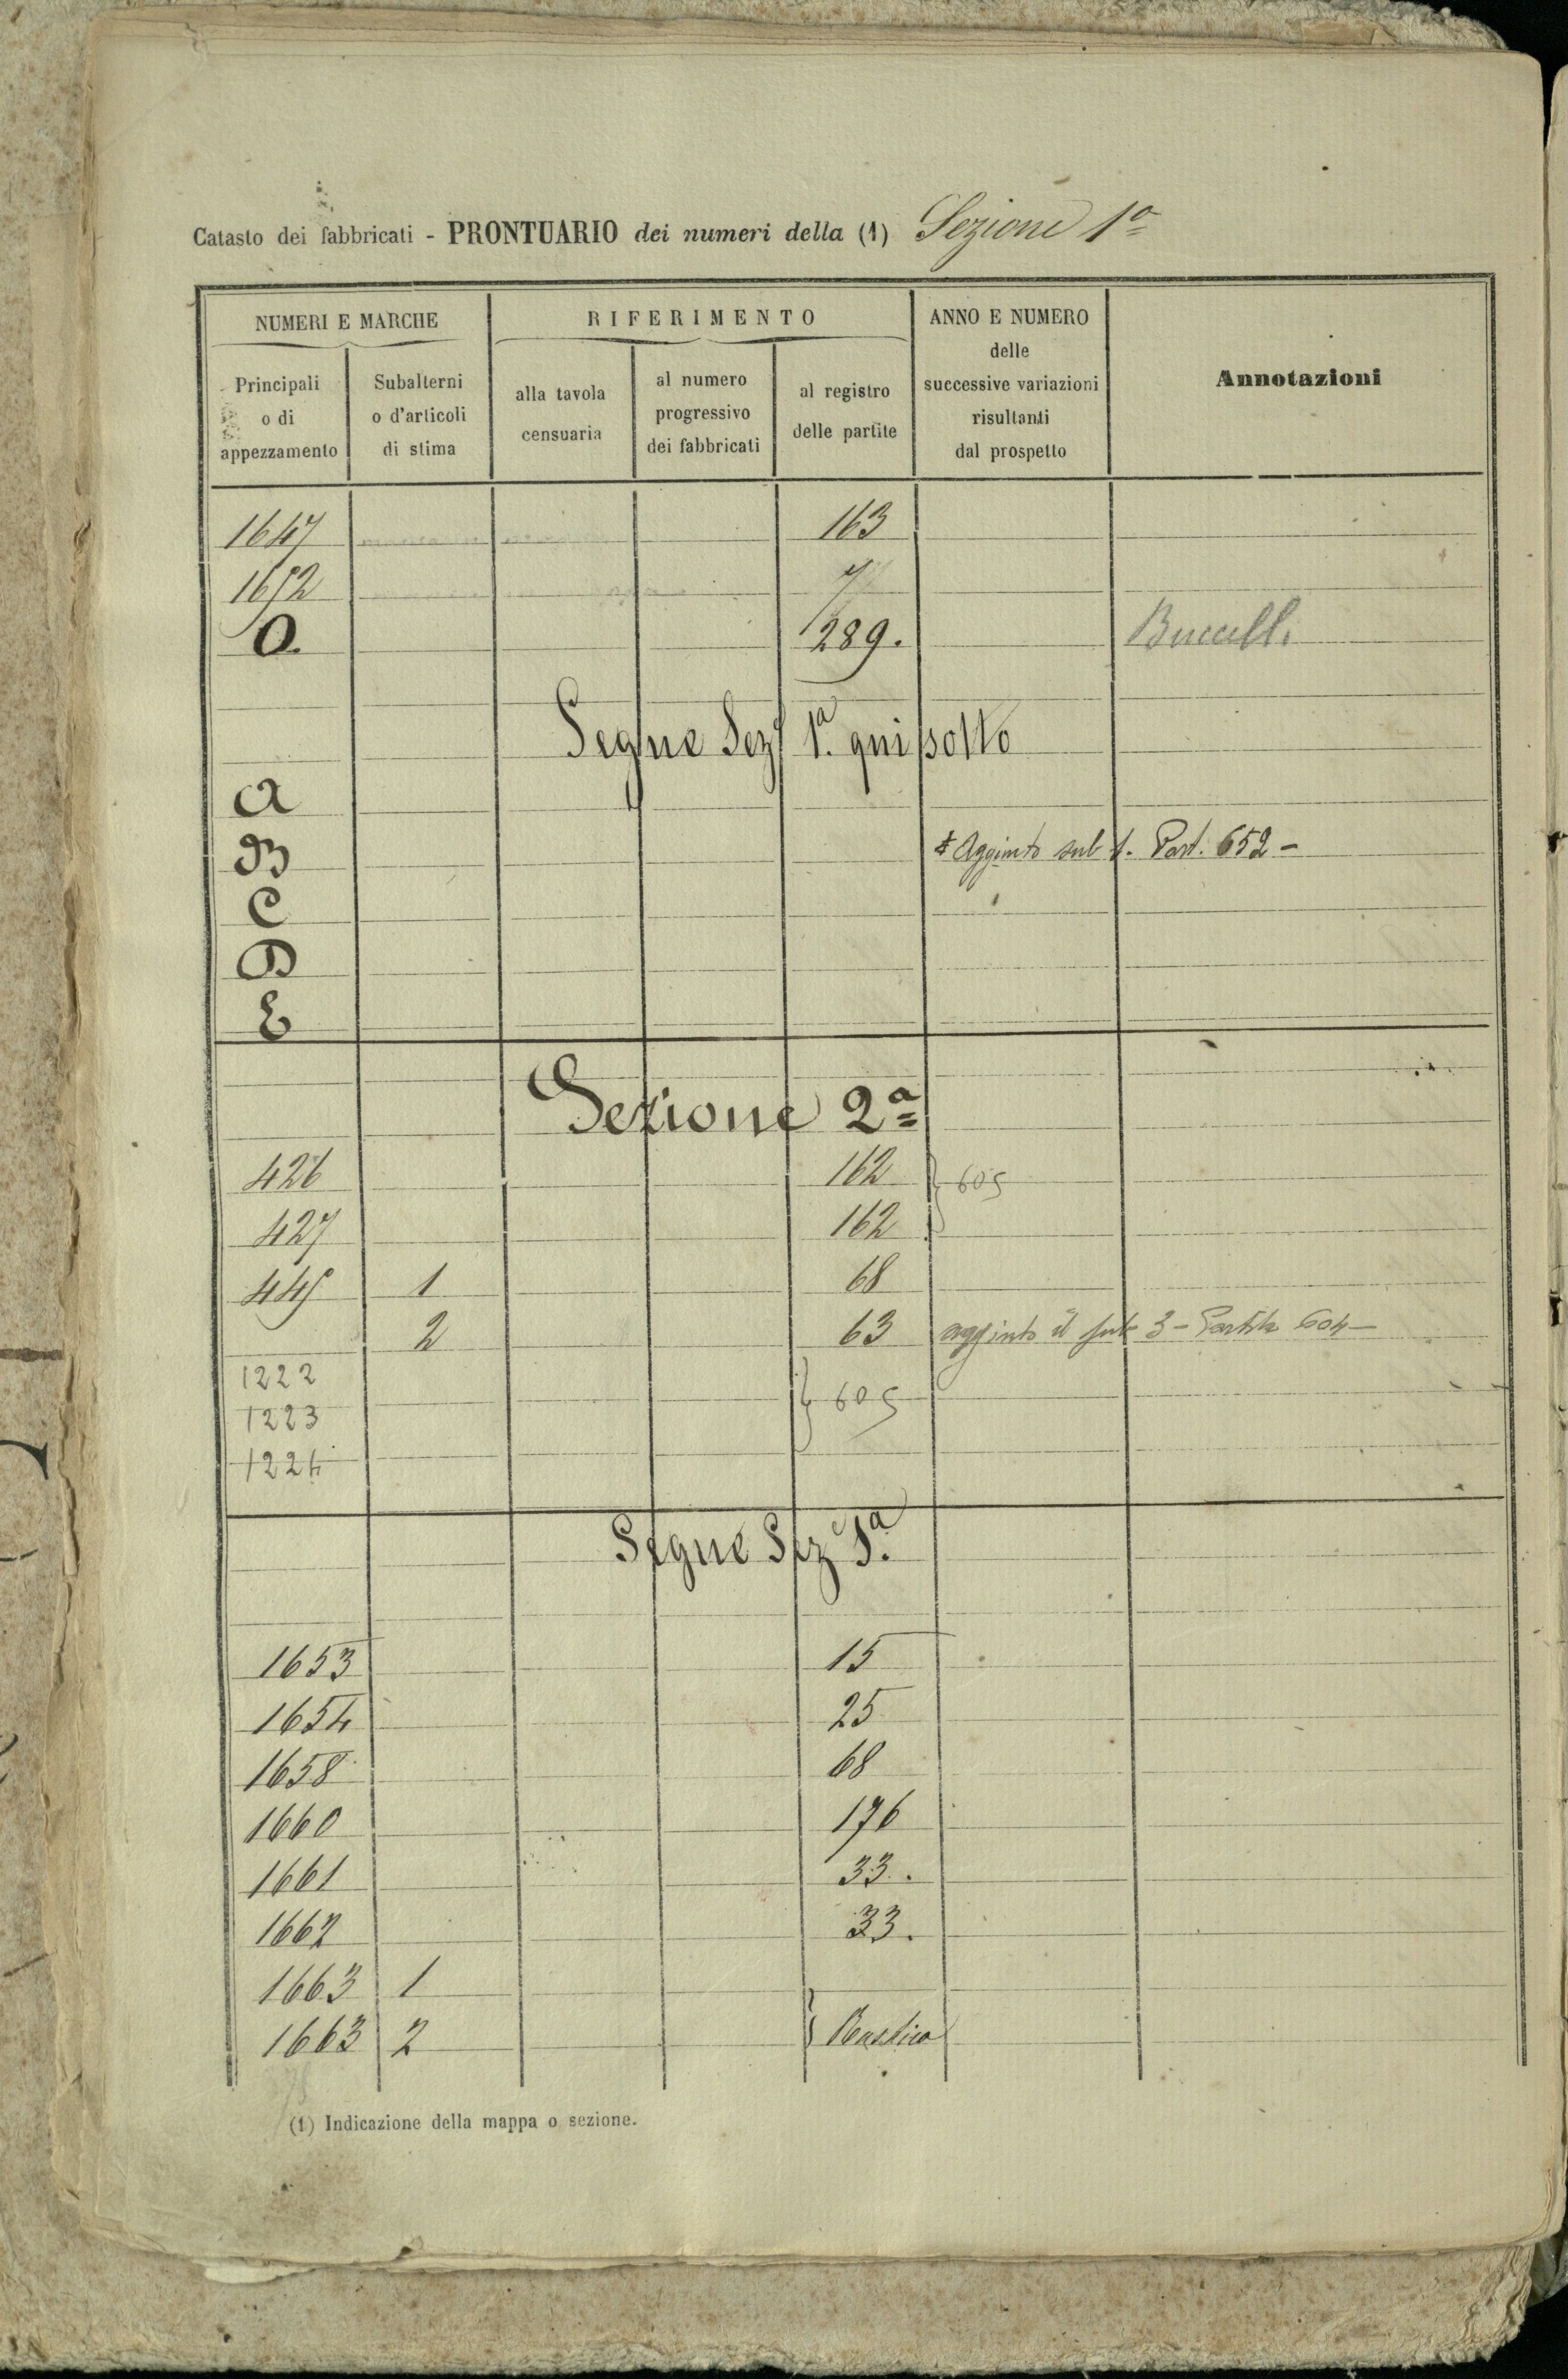 Catasto dei fabbricati - PRONTUARIO dei numeri della (1) Sezione 1ª
NUMERI E MARCHE
RIFERIMENTO
ANNO E NUMERO
delle
successive variazioni
risultanti
dal prospetto
Annotazioni
Principali
o di
appezzamento
Subalterni
o d'articoli
di stima
alla tavola
censuaria
al numero
progressivo
dei fabbricati
al registro
delle partite
1647 163
1652 7
O. 289.
Segue Sez. 1ª. qui sotto
A
B * Aggiunto sub 1. Part. 652 -
C
D
E
Sezione 2ª
426 162 } 605
427 162
445 1 68
2 63 aggiunto il sub 3 - Partita 604 -
1222
1223 } 605
1224
Segue Sez 1ª.
1653 15
1654 25
1658 68
1660 176
1661 33.
1662 33.
1663 1
1663 2 } Rustico
(1) Indicazione della mappa o sezione.